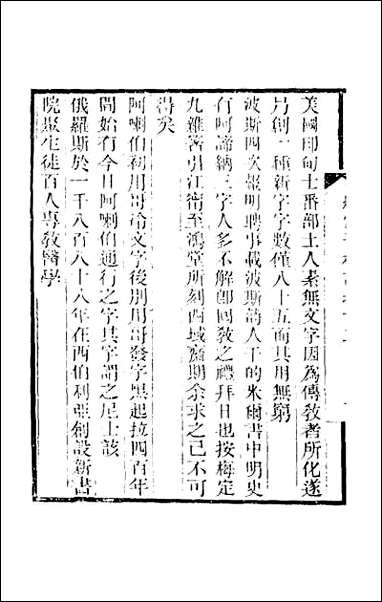 美國印甸士番部土人素無文字因爲傳敎者所化遂
乃創一種新字字數僅八十五而其用無窮
波斯四次報明聘事載波斯詩人干的朱爾書中明史
有阿諦納三字人多不解卽回敎之禮拜日也按梅定
九雜箸引江甯至鴻堂所刻西域齋期余求之已不可
得矣
阿喇伯初用哥爺文字後別用哥發字黑起拉四百年
間始有今日阿喇伯通行之字其字謂之尼士該
俄羅斯於一千八百六十八年在西伯利亞創設新書
院聚生徒百人專敎醫學